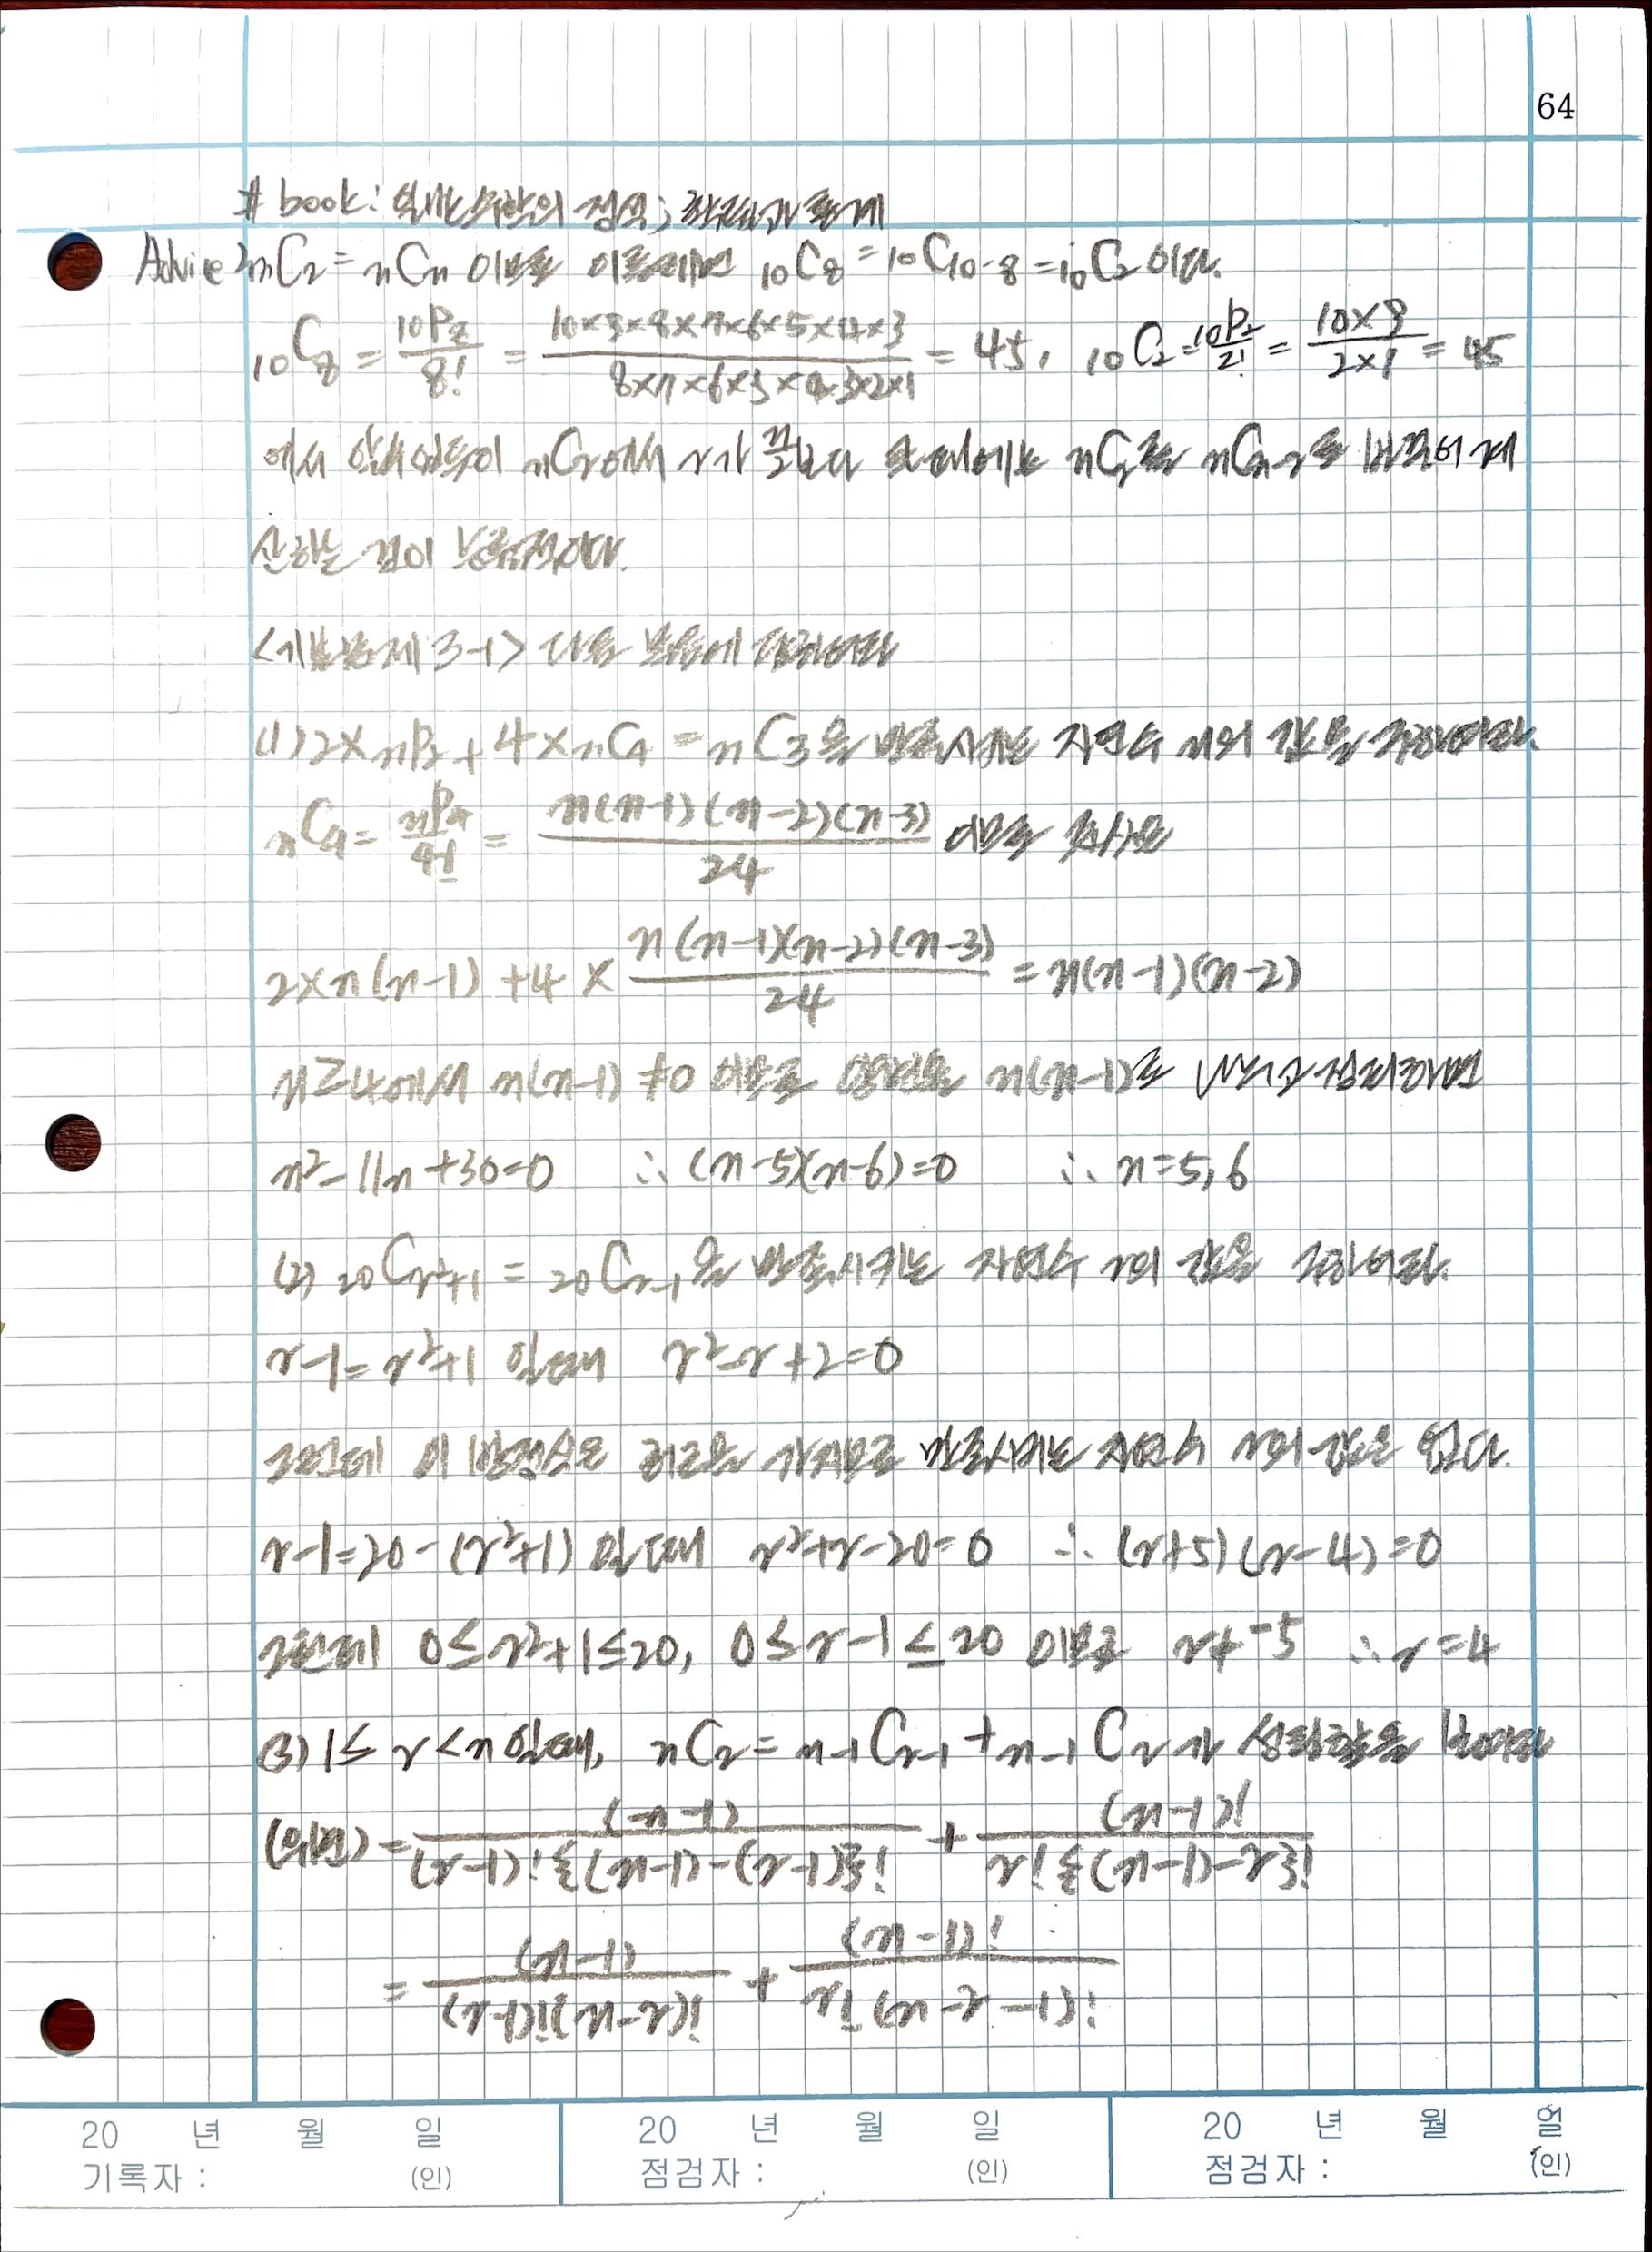 64
# book: 실력 수학의 정석; 확률과 통계
Advice 2 nCr = nCn 이므로 이를테면 10C8 = 10C10-8 = 10C2 이다.
10C8 = 10P8/8! = 10×9×8×7×6×5×4×3/8×7×6×5×4×3×2×1 = 45, 10C2 = 10P2/2! = 10×9/2×1 = 45
에서 알 수 있듯이 nCr에서 r가 n/2보다 클 때에는 nCr를 nCn-r로 바꾸어 계
산하는 것이 능률적이다.
<기본문제 3-1> 다음 물음에 답하여라
(1) 2×nP2 + 4×nC4 = nC3을 만족시키는 자연수 n의 값을 구하여라.
nC4 = nP4/4! = n(n-1)(n-2)(n-3)/24 이므로 준식은
2×n(n-1) + 4 × n(n-1)(n-2)(n-3)/24 = n(n-1)(n-2)
n≥4에서 n(n-1) ≠ 0 이므로 양변을 n(n-1)로 나누고 정리하면
n²-11n+30=0 ∴ (n-5)(n-6)=0 ∴ n=5,6
(2) 20Cr²+1 = 20Cr-1을 만족시키는 자연수 r의 값을 구하여라.
r-1=r²+1 일 때 r²-r+2=0
그런데 이 방정식은 허근을 가지므로 만족시키는 자연수 r의 값은 없다.
r-1=20-(r²+1) 일 때 r²+r-20=0 ∴ (r+5)(r-4)=0
그런데 0≤r²+1≤20, 0≤r-1≤20 이므로 r≠-5 ∴ r=4
(3) 1≤r<n일 때, nCr = n-1Cr-1 + n-1Cr가 성립함을 보여라
(우변) = (n-1)/(r-1)!{(n-1)-(r-1)}! + (n-1)!/r!{(n-1)-r}!
= (n-1)/(r-1)!(n-r)! + (n-1)!/r!(n-r-1)!
20 년 월 일 20 년 월 일 20 년 월 일
기록자 : (인) 점검자 : (인) 점검자 : (인)